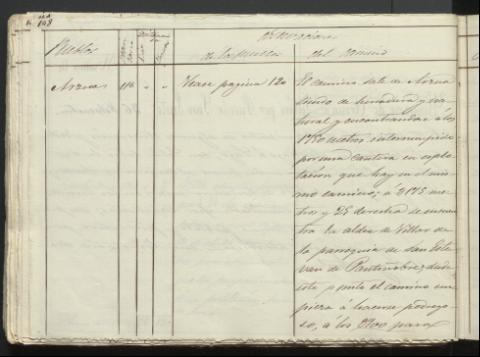 148
Pueblos
de los pueblos
del camino
Arzua 116 " " Vease pagina 120
El camino sale de Arzua
siendo de herradura y na-
tural y encontrandose á los
1780 metros interrumpido
por una cantera en esplo-
tacion que hay en el mis-
mo camino; á 2175 me-
tros y 25 derecha se encuen-
tra la aldea de Villar de
la parroquia de San Este-
van de Pantiñobre; desde
este punto el camino em-
pieza á hacerse pedrego-
so, á los 2200 pasa